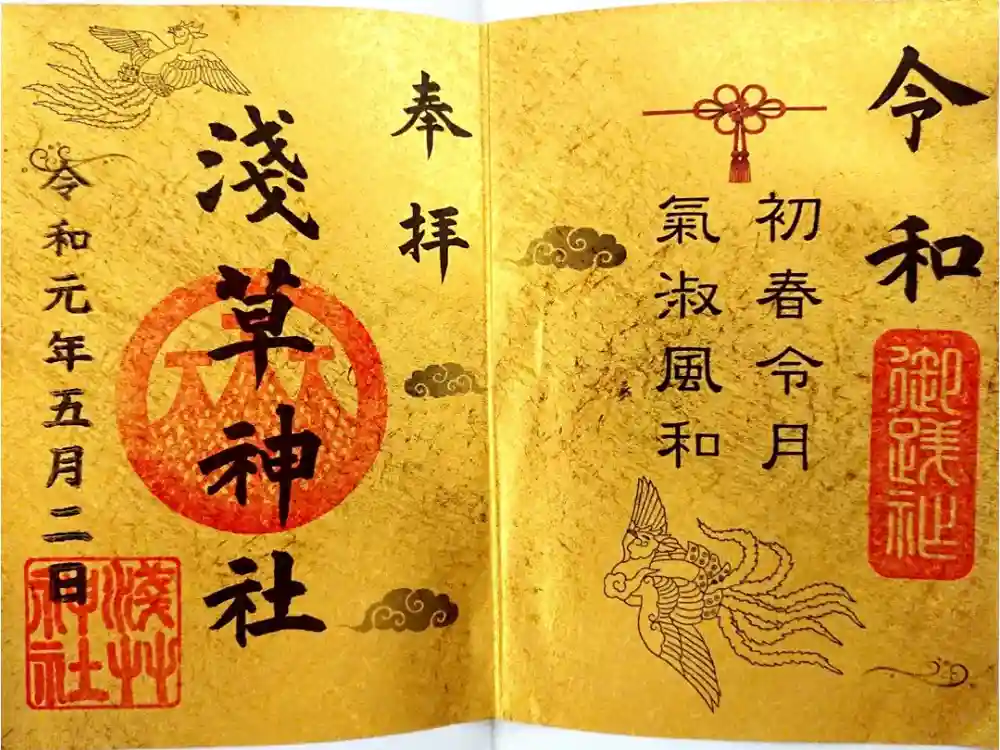 令和
御踐祚
初春令月
氣淑風和
奉拝
淺草神社
令和元年五月二日
淺草
神社